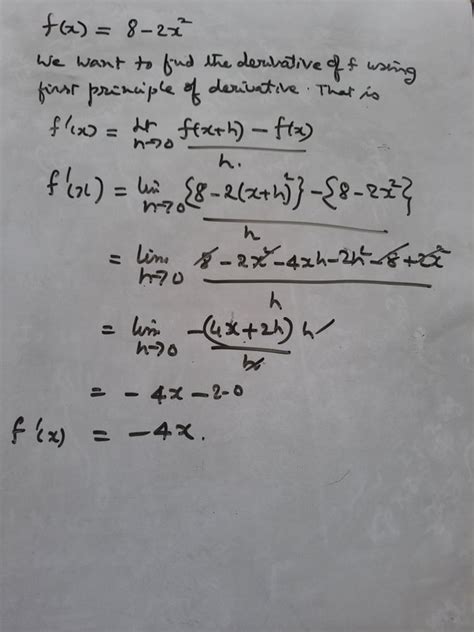 f(x) = 8 - 2x²
We want to find the derivative of f using
first principle of derivative. That is
f'(x) = lt h→0 f(x+h) - f(x) / h.
f'(x) = lim h→0 {8 - 2(x+h)²} - {8 - 2x²} / h
= lim h→0 8 - 2x² - 4xh - 2h² - 8 + 2x² / h
= lim h→0 -(4x+2h) h / h
= - 4x - 2·0
f'(x) = -4x.